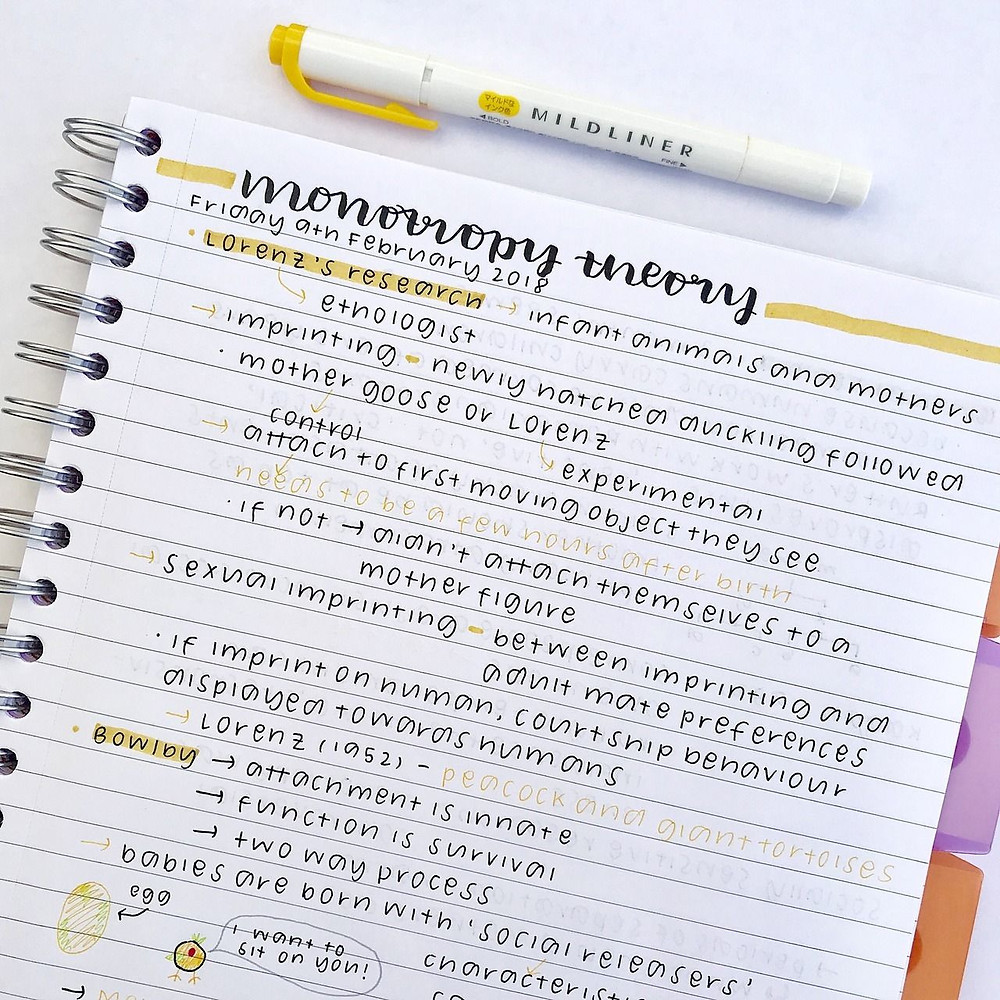 マイルドな
インク色
◀BOLD
MILDLINER
FINE▶
monotropy theory
Friday 9th February 2018
• Lorenz's research → infant animals and mothers
ethologist
→ imprinting - newly hatched duckling followed
· mother goose or Lorenz
control
experimental
→ attach to first moving object they see
needs to be a few hours after birth
· if not → didn't attach themselves to a
mother figure
→ sexual imprinting - between imprinting and
adult mate preferences
· if imprint on human, courtship behaviour
displayed towards humans
→ Lorenz (1952) - peacock and giant tortoises
• Bowlby → attachment is innate
→ function is survival
→ two way process
→ babies are born with 'social releasers'
egg
I want to
sit on you!